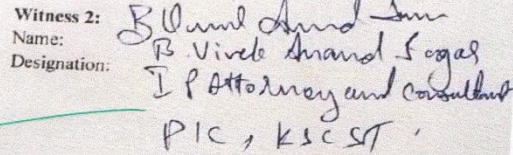 Witness 2:
Name: B. Vivek Anand Sagar
Designation: I P Attorney and Consultant
PIC, KSCST.